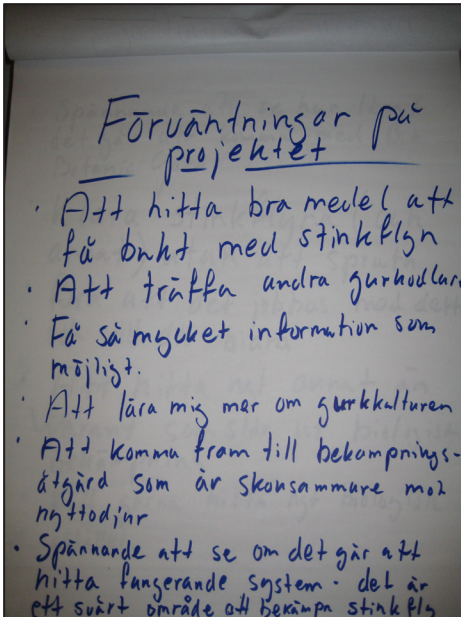 Förväntningar på
projektet
· Att hitta bra medel att
få bukt med stinkflyn
· Att träffa andra gurkodlare
· Få så mycket information som
möjligt.
· Att lära mig mer om gurkkulturen
· Att komma fram till bekämpnings-
åtgärd som är skonsammare mot
nyttodjur
· Spännande att se om det går att
hitta fungerande system. det är
ett svårt område att bekämpa stinkfly